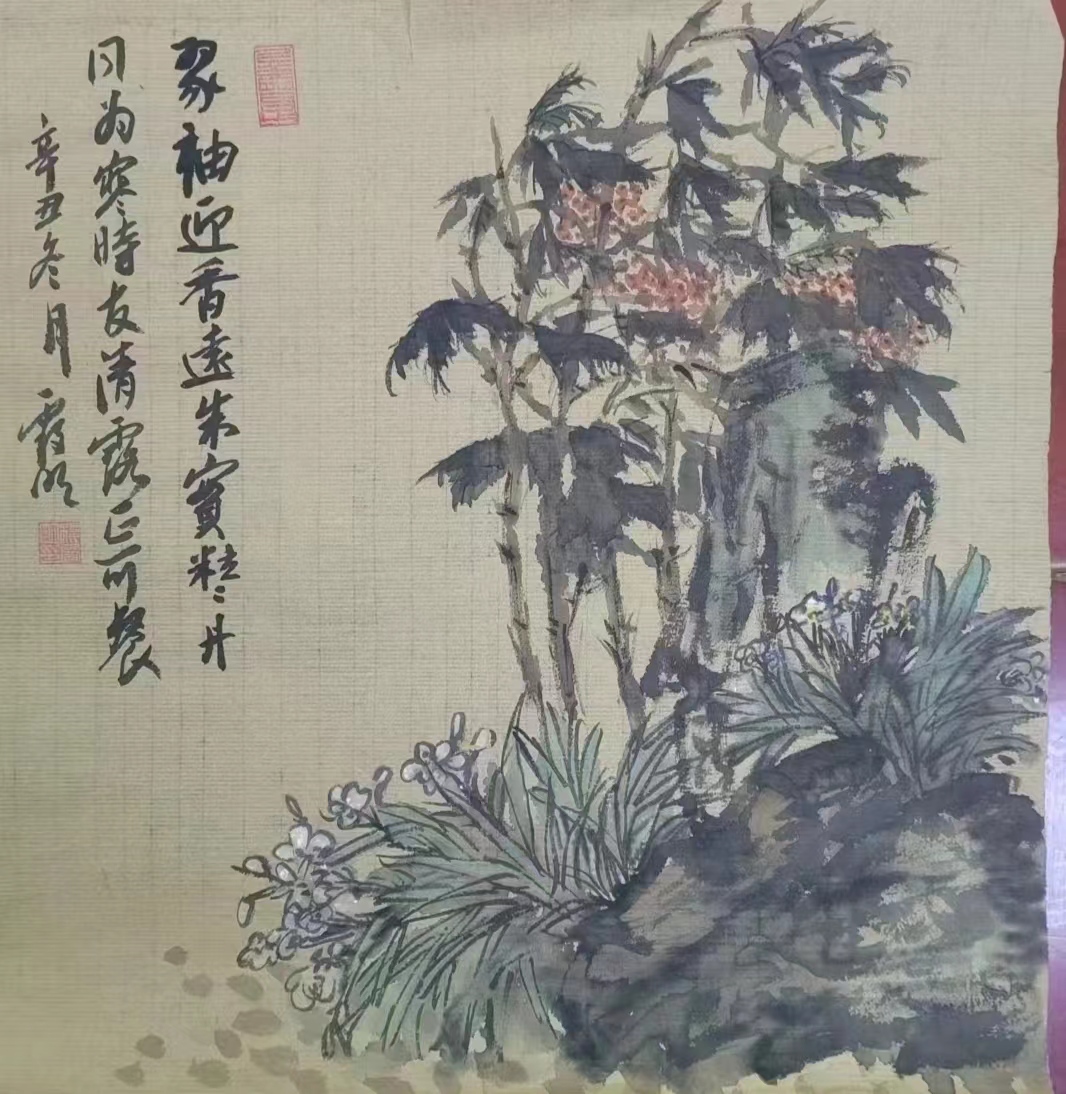 翠袖迎香遠朱實粒々丹
同为寒時友清露正可餐
辛丑冬月